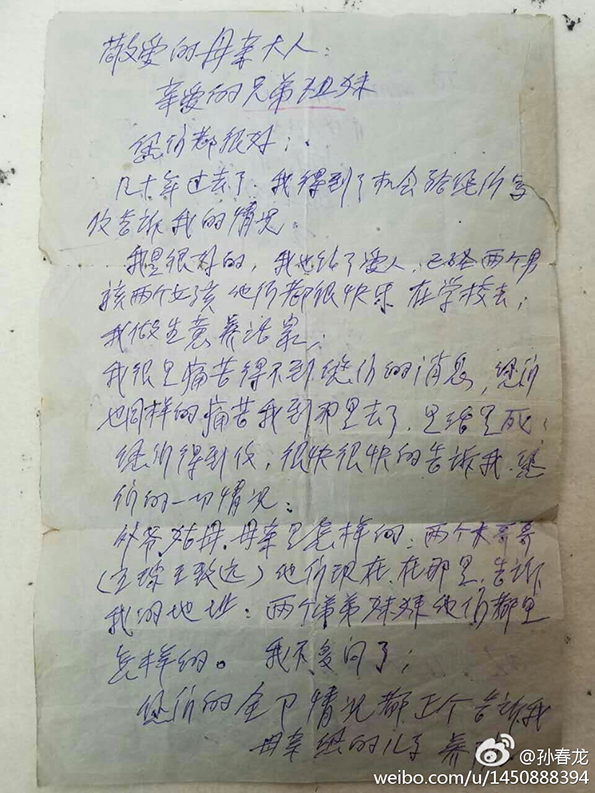 敬爱的母亲大人：
亲爱的兄弟姐妹
您们都很好；
几十年过去了，我得到了机会给您们写
信告诉我的情况：
我是很好的，我也结了爱人，已经两个男
孩两个女孩 他们都很快乐 在学校去；
我做生意养活家；
我很是痛苦得不到您们的消息，您们
也同样的痛苦我到那里去了，是活是死；
您们得到信，很快很快的告诉我，您
们的一切情况：
外爷 姑母、母亲是怎样的，两个大哥哥
(王致远) 他们现在，在那里，告诉
我的地址；两个弟弟妹妹他们都是
怎样的。 我不多问了；
您们的全部情况都正个告诉我
母亲您的儿子
@孙春龙
weibo.com/u/1450888394